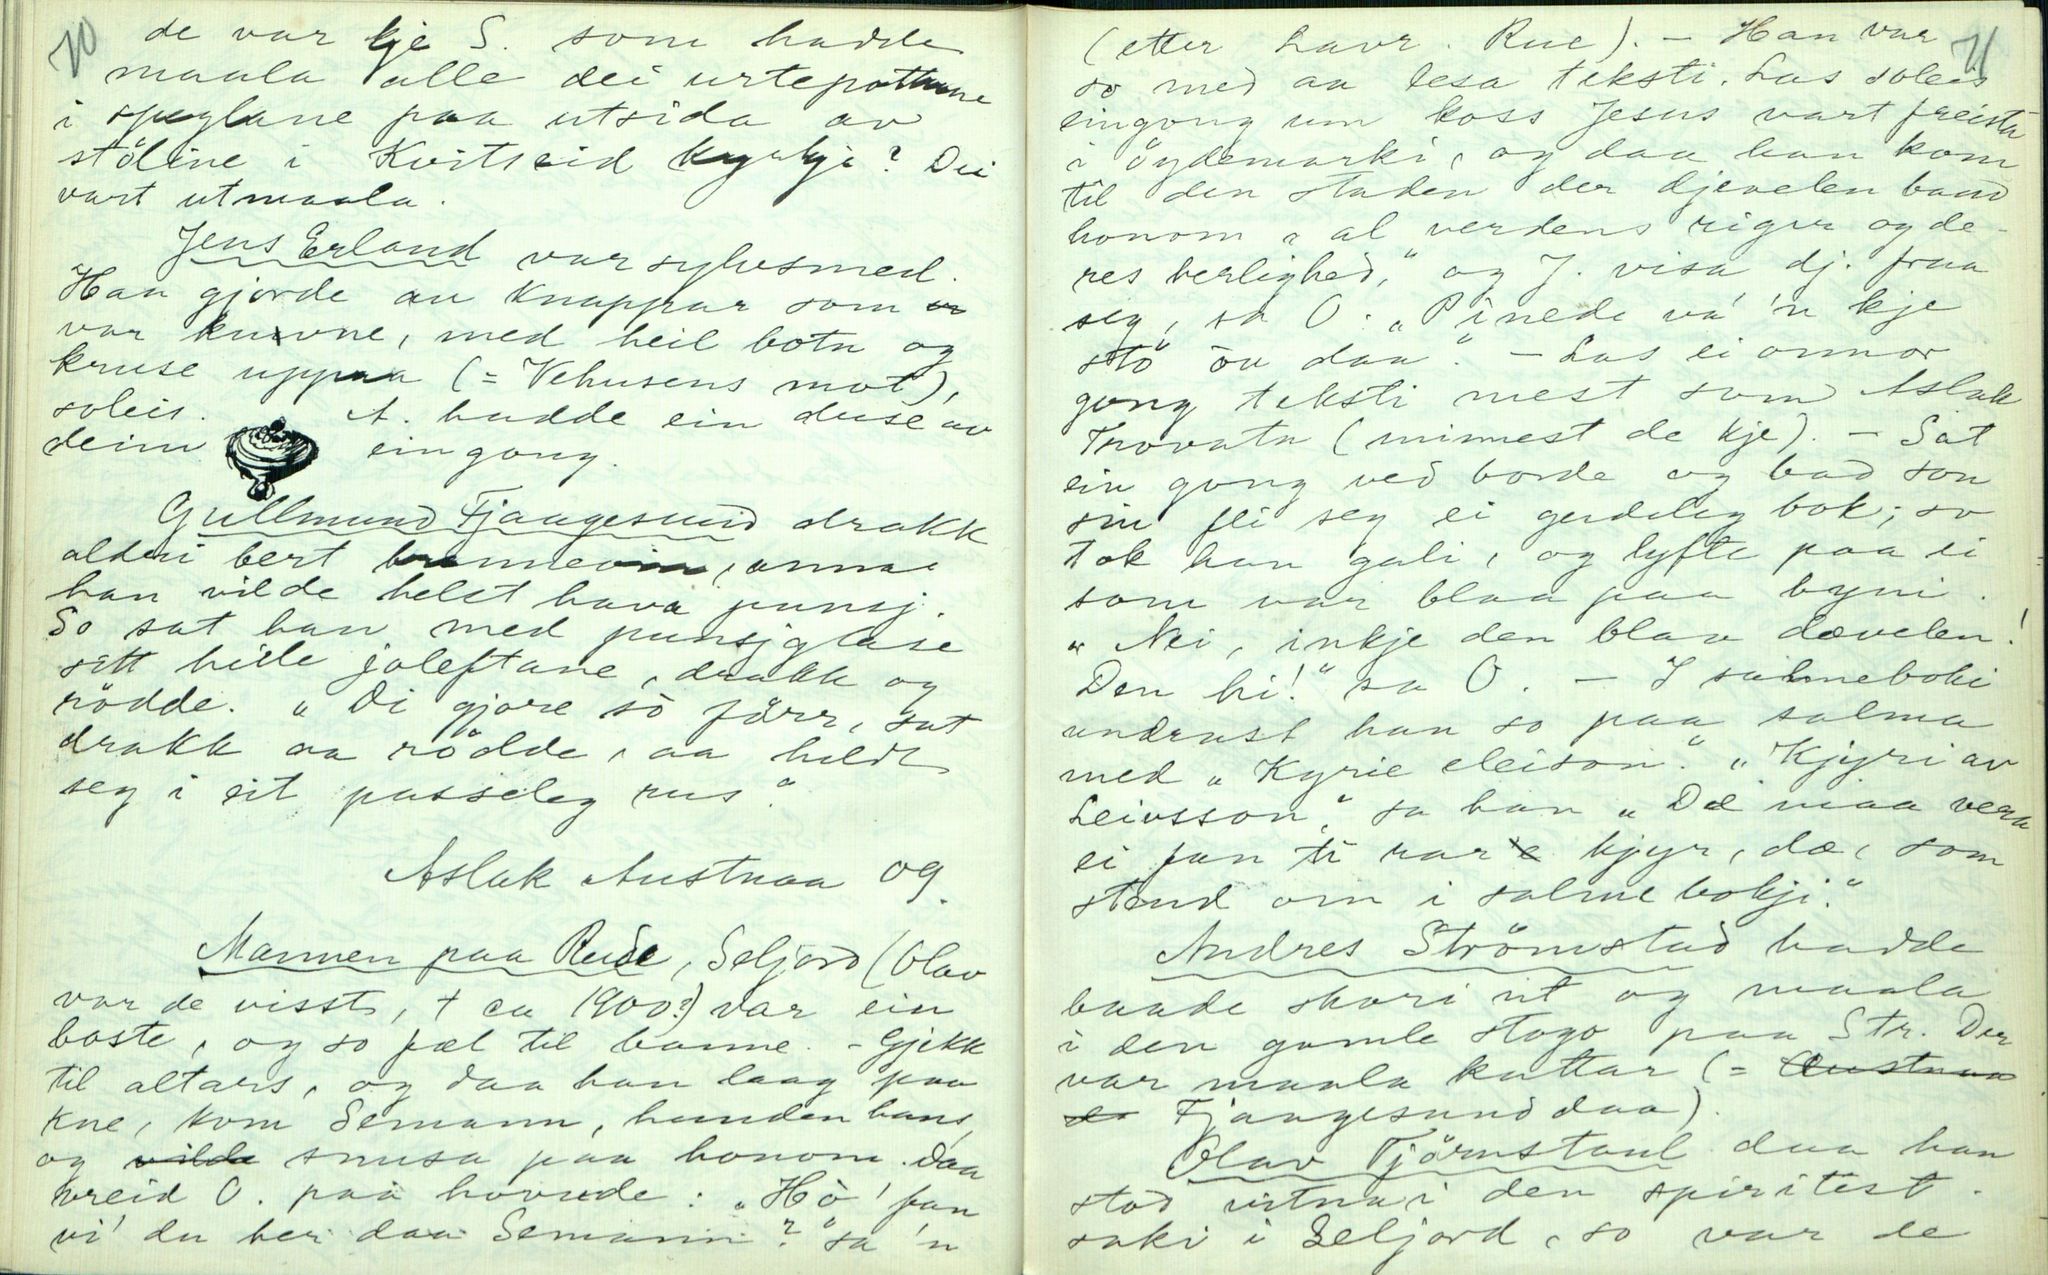 70
de var kje S. som hadde
maala alle dei urtepottune
i speglane paa utsida av
stöline i Kvitseid kyrkje? Dei
vart utmaala.
Jens Erland var sylvsmed.
Han gjorde au knappar som
var kuvne, med heil botn og
kruse uppaa (= Vehusens mot),
soleis. A. hadde ein duse av
deim eingong.
Gullmund Fjaagesund drakk
alderi bert brennevin, anna
han vilde helst hava punsj.
So sat han med punsjglase
sitt heile joleftane, drakk og
rödde. "Di gjore so förr, sat
drakk aa rödde, aa heldt
seg i eit passeleg rus."
Aslak Austnaa og
Mannen paa Rude, Seljord (Olav
var de visst, † ca 1900?) var ein
boste, og so fæl til banne. - Gjekk
til altars, og daa han laag paa
kne, kom Semann, hunden hans,
og vilde snusa paa honom. Daa
vreid O. paa hovude: "Hò' fan
vi' du her daa Semann?" sa 'n
71
(etter Lavr. Rue). - Han var
so med aa lesa teksti. Las soleis
eingong um koss Jesus vart freista
i öydemarki, og daa han kom
til den staden der djevelen baud
honom "al verdens riger og de-
res herlighed," og J. visa dj. fraa
seg, sa O: "Pinede va' 'n kje
stö òu daa". - Las ei onnor
gong teksti mest som Aslak
Trovatn (minnest de kje). - Sat
ein gong ved borde og bad son
sin fli seg ei gudeleg bok; so
tok han gali, og lyfte paa ei
som var blaa paa bzni.
"Nei, inkje den blaae dævelen!
Den hi!" sa O. - I salmeboki
undrast han so paa salma
med "Kyrie eleison". "Kjyri av
Leivsson," sa han "Dæ maa vera
ei fan ti rar kjyr, dæ, som
stend om i salmebokji."
Andres Strömstad hadde
baade skori ut og maala
i den gomle stogo paa Str. Der
var maala kattar (= Austnaa
Fjaagesund daa).
Olav Tjörnstaul daa han
stod vitna i den spiritist.
saki i Seljord, so var de